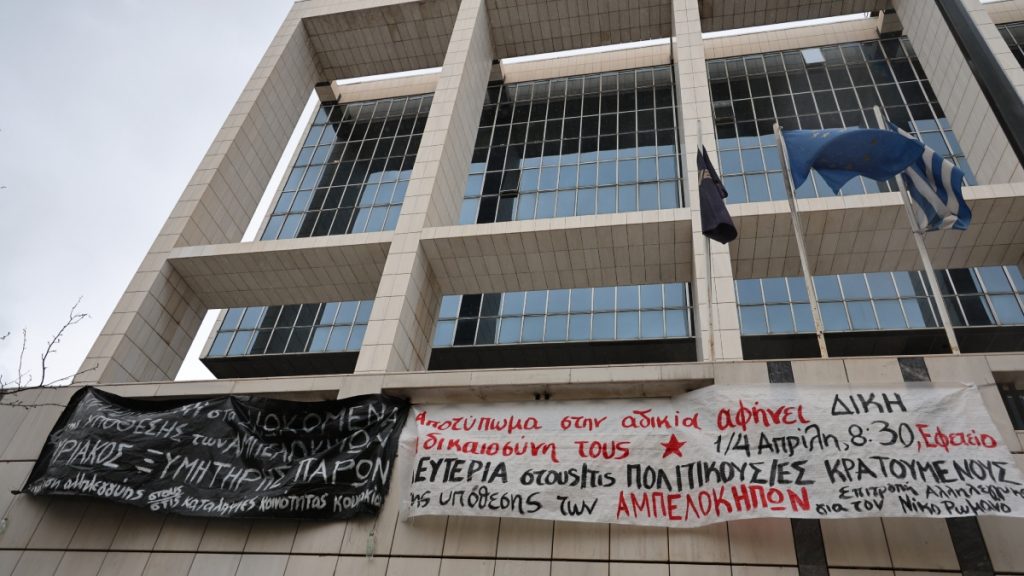 ΔΙΩΚΟΜΕΝ
ΥΠΟΘΕΣΗΣ των ΑΜΠΕΛΟΚΗΠΩΝ
ΚΥΡΙΑΚΟΣ ΞΥΜΗΤΗΡΗΣ ΠΑΡΟΝ
αλληλεγγύης στους
στις καταληψίες κοινότητας
Αποτύπωμα στην αδικία αφήνει ΔΙΚΗ
δικαιοσύνη τους ★ 1/4 Απρίλη, 8:30, Εφετείο
ΛΕΥΤΕΡΙΑ στους/τις ΠΟΛΙΤΙΚΟΥΣ/ΙΕΣ ΚΡΑΤΟΥΜΕΝΟΥΣ
της υπόθεσης των ΑΜΠΕΛΟΚΗΠΩΝ Επιτροπή Αλληλεγγύης
για τον Νίκο Ρωμανό